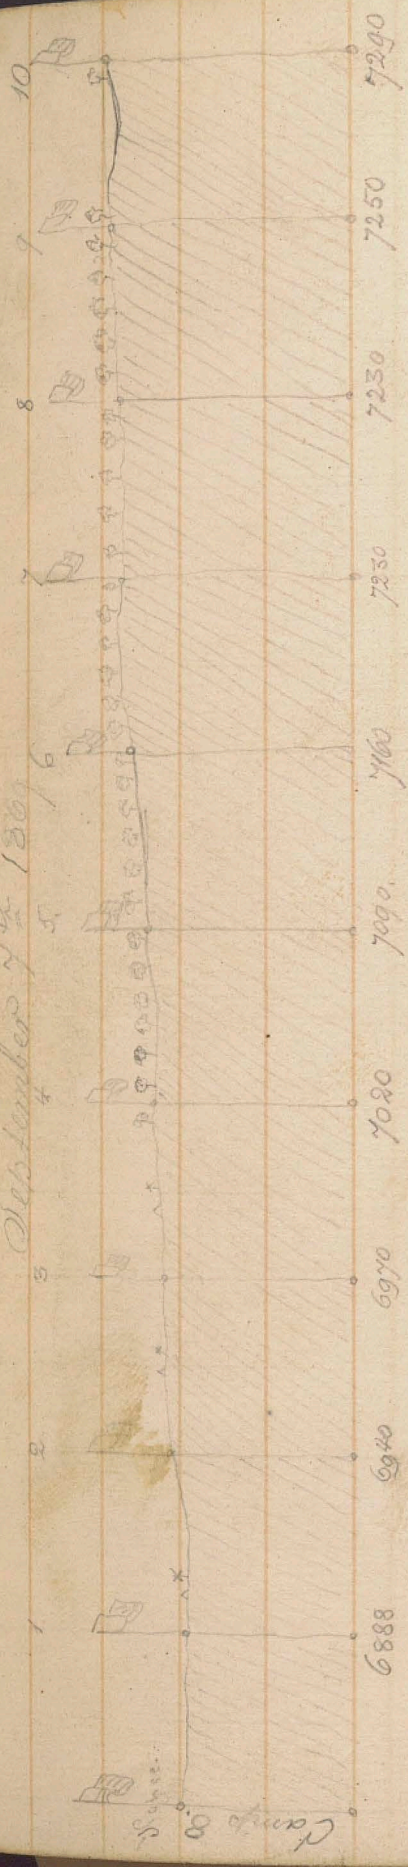 September 7th 186
1 2 3 4 5 6 7 8 9 10
Camp 8.
6888 6940 6970 7020 7090. 7160 7230 7230 7250 7290